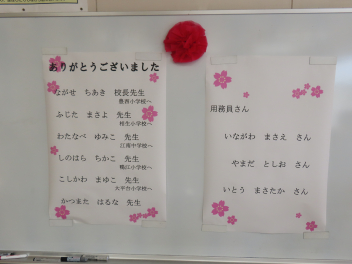 ありがとうございました
ながせ　ちあき　校長先生
豊西小学校へ
ふじた　まさよ　先生
桜生小学校へ
わたなべ　ゆみこ　先生
江南中学校へ
しのはら　ちかこ　先生
鴨江小学校へ
こしかわ　まゆこ　先生
大平台小学校へ
かつまた　はるな　先生
用務員さん
いながわ　まさえ　さん
やまだ　としお　さん
いとう　まさたか　さん